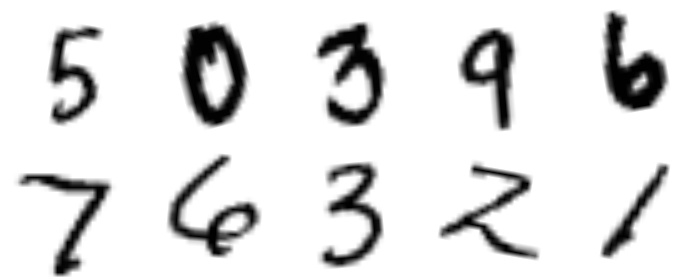 5 0 3 9 6
7 6 3 2 1